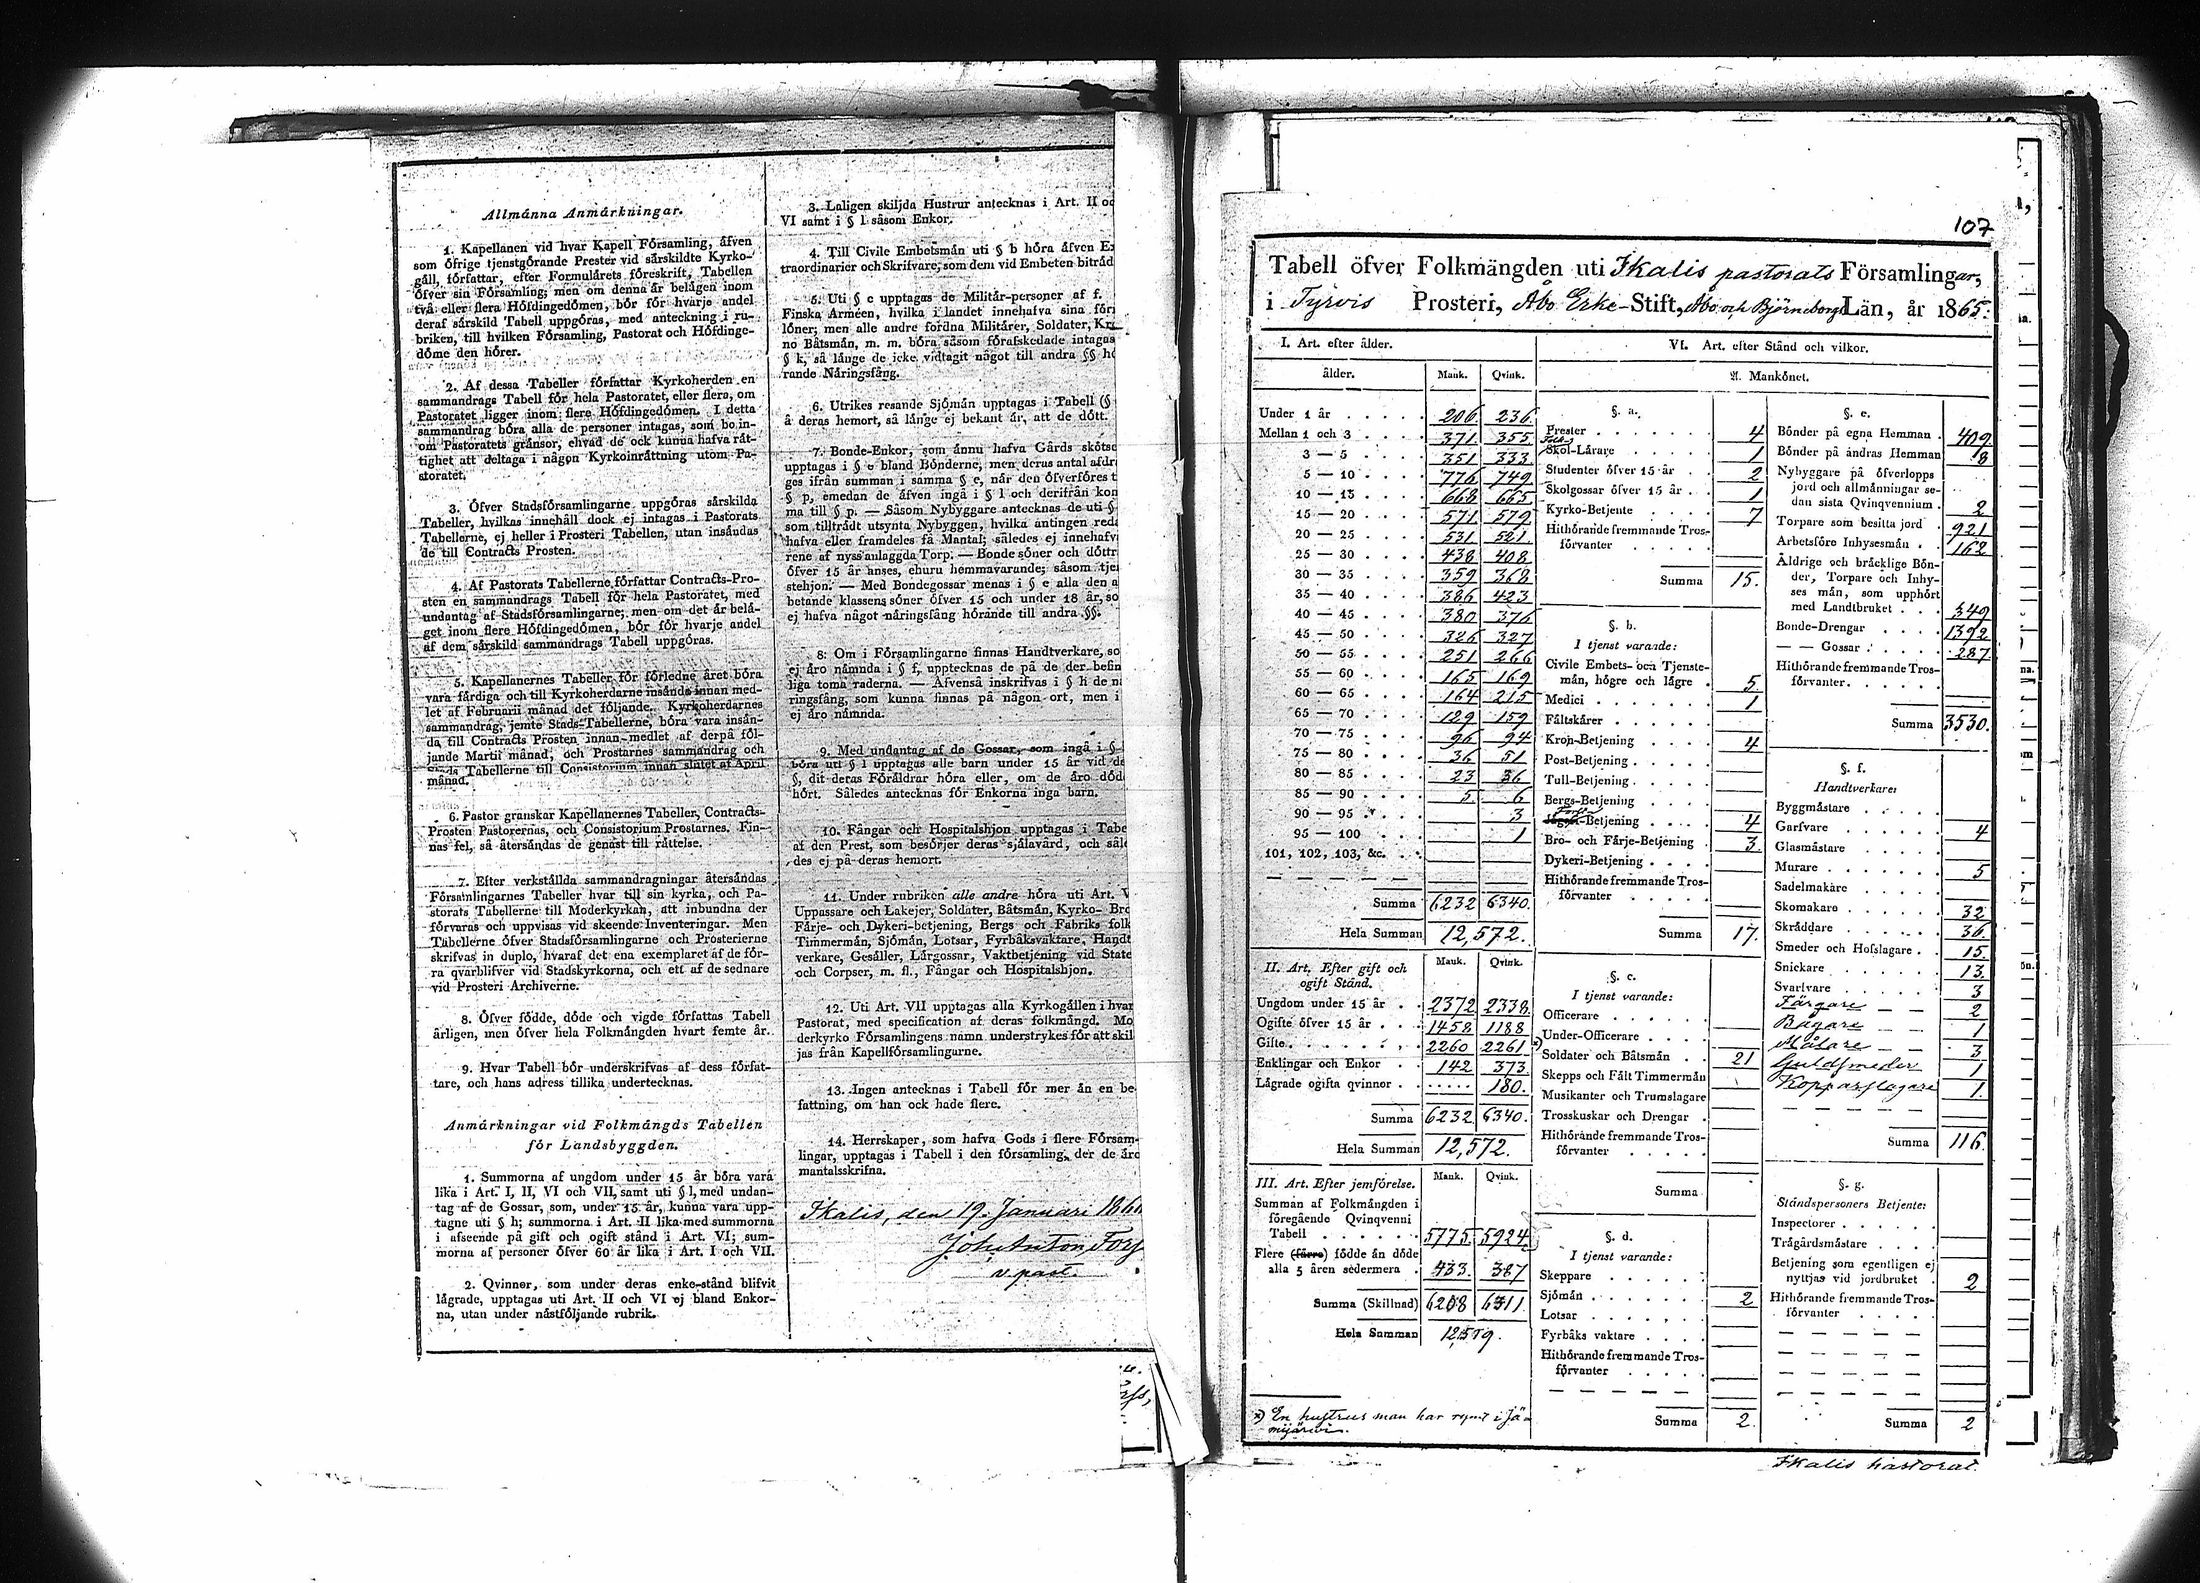 Allmänna Anmärkningar.
1. Kapellanen vid hvar Kapell Församling, äfven
som öfrige tjenstgörande Prester vid särskildte Kyrko-
gäll, författar, efter Formulärets föreskrift, Tabellen
öfver sin Församling; men om denna är belägen inom
två eller flera Höfdingedömen, bör för hvarje andel
deraf särskild Tabell uppgöras, med anteckning i ru-
briken, till hvilken Församling, Pastorat och Höfdinge-
döme den hörer.
2. Af dessa Tabeller författar Kyrkoherden en
sammandrags Tabell för hela Pastoratet, eller flera, om
Pastoratet ligger inom flere Höfdingedömen. I detta
sammandrag böra alla de personer intagas, som bo in-
om Pastoratets gränsor, ehvad de ock kunna hafva rät-
tighet att deltaga i någon Kyrkoinrättning utom Pa-
storatet.
3. Öfver Stadsförsamlingarne uppgöras särskilda
Tabeller, hvilkas innehåll dock ej intagas i Pastorats
Tabellerne, ej heller i Prosteri Tabellen, utan insändas
de till Contracts Prosten.
4. Af Pastorats Tabellerne författar Contracts-Pro-
sten en sammandrags Tabell för hela Pastoratet, med
undantag af Stadsförsamlingarne; men om det är belä-
get inom flere Höfdingedömen, bör för hvarje andel
af dem särskild sammandrags Tabell uppgöras.
5. Kapellanernes Tabeller för förledne året böra
vara färdiga och till Kyrkoherdarne insände innan med-
let af Februarii månad det följande. Kyrkoherdarnes
sammandrag, jemte Stads-Tabellerne, böra vara insän-
da till Contracts Prosten innan medlet af derpå föl-
jande Martii månad, och Prostarnes sammandrag och
Stads Tabellerne till Consistorium innan slutet af April
månad.
6. Pastor granskar Kapellanernes Tabeller, Contracts-
Prosten Pastorernas, och Consistorium Prostarnes. Fin-
nas fel, så återsändas de genast till rättelse.
7. Efter verkställda sammandragningar återsändas
Församlingarnes Tabeller hvar till sin kyrka, och Pa-
storats Tabellerne till Moderkyrkan, att inbundna der
förvaras och uppvisas vid skeende Inventeringar. Men
Tabellerne öfver Stadsförsamlingarne och Prosterierne
skrifvas in duplo, hvaraf det ena exemplaret af de för-
ra qvarblifver vid Stadskyrkorna, och ett af de sednare
vid Prosteri Archiverne.
8. Öfver födde, döde och vigde författas Tabell
årligen, men öfver hela Folkmängden hvart femte år.
9. Hvar Tabell bör underskrifvas af dess förfat-
tare, och hans adress tillika undertecknas.
Anmärkningar vid Folkmängds Tabellen
för Landsbyggden.
1. Summorna af ungdom under 15 år böra vara
lika i Art. I, II, VI och VII, samt uti § l, med undan-
tag af de Gossar, som, under 15 år, kunna vara upp-
tagne uti § h; summorna i Art. II lika med summorna
i afseende på gift och ogift stånd i Art. VI; sum-
morna af personer öfver 60 år lika i Art. I och VII.
2. Qvinnor, som under deras enke-stånd blifvit
lägrade, upptagas uti Art. II och VI ej bland Enkor-
na, utan under nästföljande rubrik.
3. Laligen skiljda Hustrur antecknas i Art. II oc
VI samt i § l såsom Enkor.
4. Till Civile Embetsmän uti § b höra äfven Ex
traordinarier och Skrifvare, som dem vid Embeten biträd
5. Uti § c upptagas de Militär-personer af f.
Finska Arméen, hvilka i landet innehafva sina för
löner; men alle andre fordna Militärer, Soldater, Kr
no Båtsmän, m. m. böra såsom förafskedade intagas
§ k, så länge de icke vidtagit något till andra §§ hö
rande Näringsfång.
6. Utrikes resande Sjömän upptagas i Tabell (§
å deras hemort, så länge ej bekant är, att de dött.
7. Bonde-Enkor, som ännu hafva Gårds skötse
upptagas i § e bland Bönderne; men deras antal afdr
ges ifrån summan i samma § e, når den öfverföres t
§ p, emedan de äfven ingå i § l och derifrån kom
ma till § p. — Såsom Nybyggare antecknas de uti §
som tillträdt utsynta Nybyggen, hvilka antingen reda
hafva eller framdeles få Mantal; således ej innehafv
rene af nyss anlaggda Torp. — Bonde söner och döttr
öfver 15 år anses, ehuru hemmavarande, såsom tje
stehjon. — Med Bondegossar menas i § e alla den a
betande klassens söner öfver 15 och under 18 år, so
ej hafva något näringsfång hörande till andra §§.
8. Om i Församlingarne finnas Handtverkare, so
ej äro nämnda i § f, upptecknas de på de der befin
liga toma raderna. — Äfvenså inskrifvas i § h de n
ringsfång, som kunna finnas på någon ort, men i
ej äro nämnda.
9. Med undantag af de Gossar, som ingå i §
böra uti § l upptagas alle barn under 15 år vid de
§, dit deras Föräldrar höra eller, om de äro döde
hört. Således antecknas för Enkorna inga barn.
10. Fångar och Hospitalshjon upptagas i Tabe
af den Prest, som besörjer deras själavård, och sål
des ej på deras hemort.
11. Under rubriken alle andre höra uti Art. V
Uppassare och Lakejer, Soldater, Båtsmän, Kyrko- Bro
Färje- och Dykeri-betjening, Bergs och Fabriks folk
Timmermän, Sjömän, Lotsar, Fyrbåksvaktare, Handt
verkare, Gesäller, Lärgossar, Vaktbetjening vid State
och Corpser, m. fl., Fångar och Hospitalshjon.
12. Uti Art. VII upptagas alla Kyrkogällen i hvar
Pastorat, med specification af deras folkmängd. Mo
derkyrko Församlingens namn understrykes för att skil
jas från Kapellförsamlingarne.
13. Ingen antecknas i Tabell för mer än en be-
fattning, om han ock hade flere.
14. Herrskaper, som hafva Gods i flere Försam-
lingar, upptagas i Tabell i den församling, der de äro
mantalsskrifna.
Ikalis, den 19. Januari 186
Joh. Anton Fors
v. past.
107
Tabell öfver Folkmängden uti Ikalis pastorats Församlingar,
i Tyrvis Prosteri, Åbo Erke-Stift, Åbo och Björneborgs Län, år 1865.
I. Art. efter ålder.
ålder. Mank. Qvink.
Under 1 år 206 236
Mellan 1 och 3 371 355
3 — 5 351 333
5 — 10 776 749
10 — 15 668 665
15 — 20 571 579
20 — 25 531 521
25 — 30 438 408
30 — 35 359 368
35 — 40 386 423
40 — 45 380 376
45 — 50 326 327
50 — 55 251 266
55 — 60 165 169
60 — 65 164 215
65 — 70 129 159
70 — 75 96 94
75 — 80 36 51
80 — 85 23 36
85 — 90 5 6
90 — 95 3
95 — 100 1
101, 102, 103, &c.
Summa 6232 6340.
Hela Summan 12,572.
II. Art. Efter gift och
ogift Stånd. Mank. Qvink.
Ungdom under 15 år 2372 2338
Ogifte öfver 15 år 1458 1188
Gifte 2260 2261 *)
Enklingar och Enkor 142 373
Lägrade ogifta qvinnor 180.
Summa 6232 6340.
Hela Summan 12,572.
III. Art. Efter jemförelse. Mank. Qvink.
Summan af Folkmängden i
föregående Qvinqvenni
Tabell 5775 5924
Flere (färre) födde än döde
alla 5 åren sedermera 433. 387
Summa (Skillnad) 6208 6311
Hela Summan 12,519.
*) En hustrus man har rymt i Jä-
mijärvi.
VI. Art. efter Stånd och vilkor.
A. Mankönet.
§. a.
Prester 4
Folk-
Skol-Lärare 1
Studenter öfver 15 år 2
Skolgossar öfver 15 år 1
Kyrko-Betjente 7
Hithörande fremmande Tros-
förvanter
Summa 15.
§. b.
I tjenst varande:
Civile Embets- och Tjenste-
män, högre och lägre 5
Medici 1
Fältskärer
Kron-Betjening 4
Post-Betjening
Tull-Betjening
Bergs-Betjening
-Betjening 4
Bro- och Färje-Betjening 3
Dykeri-Betjening
Hithörande fremmande Tros-
förvanter
Summa 17.
§. c.
I tjenst varande:
Officerare
Under-Officerare
Soldater och Båtsmän 21
Skepps och Fält Timmermän
Musikanter och Trumslagare
Trosskuskar och Drengar
Hithörande fremmande Tros-
förvanter
Summa
§. d.
I tjenst varande:
Skeppare
Sjömän 2
Lotsar
Fyrbåks vaktare
Hithörande fremmande Tros-
förvanter
Summa 2.
§. e.
Bönder på egna Hemman 409
Bönder på andras Hemman 8
Nybyggare på öfverlopps
jord och allmänningar se-
dan sista Qvinqvennium 2
Torpare som besitta jord 921
Arbetsföre Inhysesmän 162
Åldrige och bräcklige Bön-
der, Torpare och Inhy-
ses män, som upphört
med Landtbruket 349
Bonde-Drengar 1392
— — Gossar 287
Hithörande fremmande Tros-
förvanter
Summa 3530.
§. f.
Handtverkare:
Byggmästare
Garfvare 4
Glasmästare
Murare 5
Sadelmakare
Skomakare 32
Skräddare 36
Smeder och Hofslagare 15
Snickare 13
Svarfvare 3
Färgare — — 2
Bagare — — 1
Målare — — 3
Guldsmeder 1
Kopparslagare 1.
Summa 116.
§. g.
Ståndspersoners Betjente:
Inspectorer
Trägårdsmästare
Betjening som egentligen ej
nyttjas vid jordbruket 2
Hithörande fremmande Tros-
förvanter
Summa 2
Ikalis pastorat.